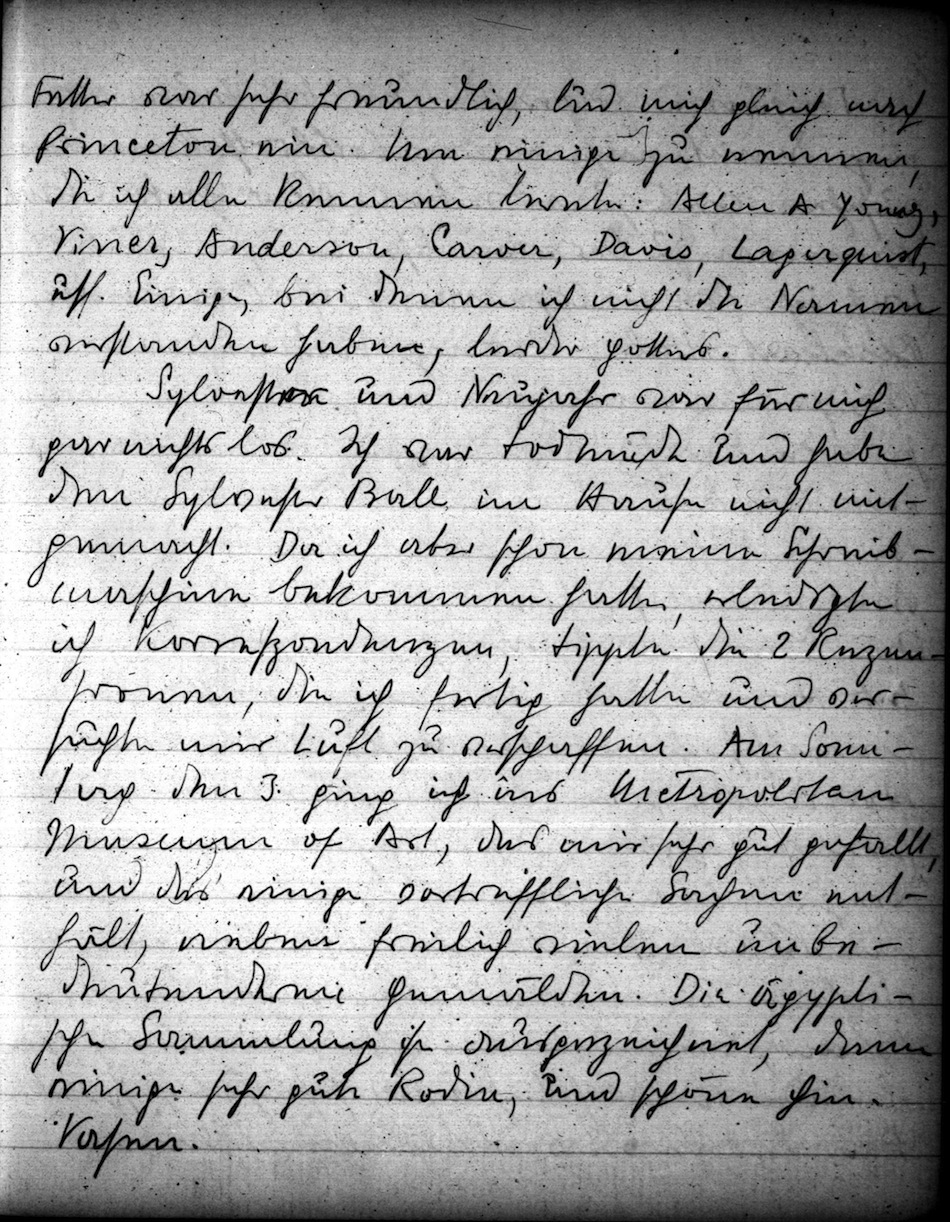 Fetter war sehr freundlich, lud mich gleich nach
Princeton ein. Um einige zu nennen,
die ich alle kennen lernte: Allen A Young,
Viner, Anderson, Carver, Davis, Lagerquist,
uff. Einige, bei denen ich nicht die Namen
verstanden habe, leider Gottes.
Sylvester und Neujahr war für mich
gar nichts los. Ich war todmüde und habe
den Sylvester Ball im Hause nicht mit-
gemacht. Da ich aber schon meine Schreib-
maschine bekommen hatte, erledigte
ich Korrespondenzen, tippte die 2 Rezen-
sionen, die ich fertig hatte und ver-
suchte mir Luft zu verschaffen. Am Sonn-
tag den 3. ging ich ins Metropolitan
Museum of Art, das mir sehr gut gefällt,
und das einige vortreffliche Sachen ent-
hält, neben freilich vielen unbe-
deutenderen Gemälden. Die ägypti-
sche Sammlung ist ausgezeichnet, dann
einige sehr gute Rodin, und schöne chin.
Vasen.